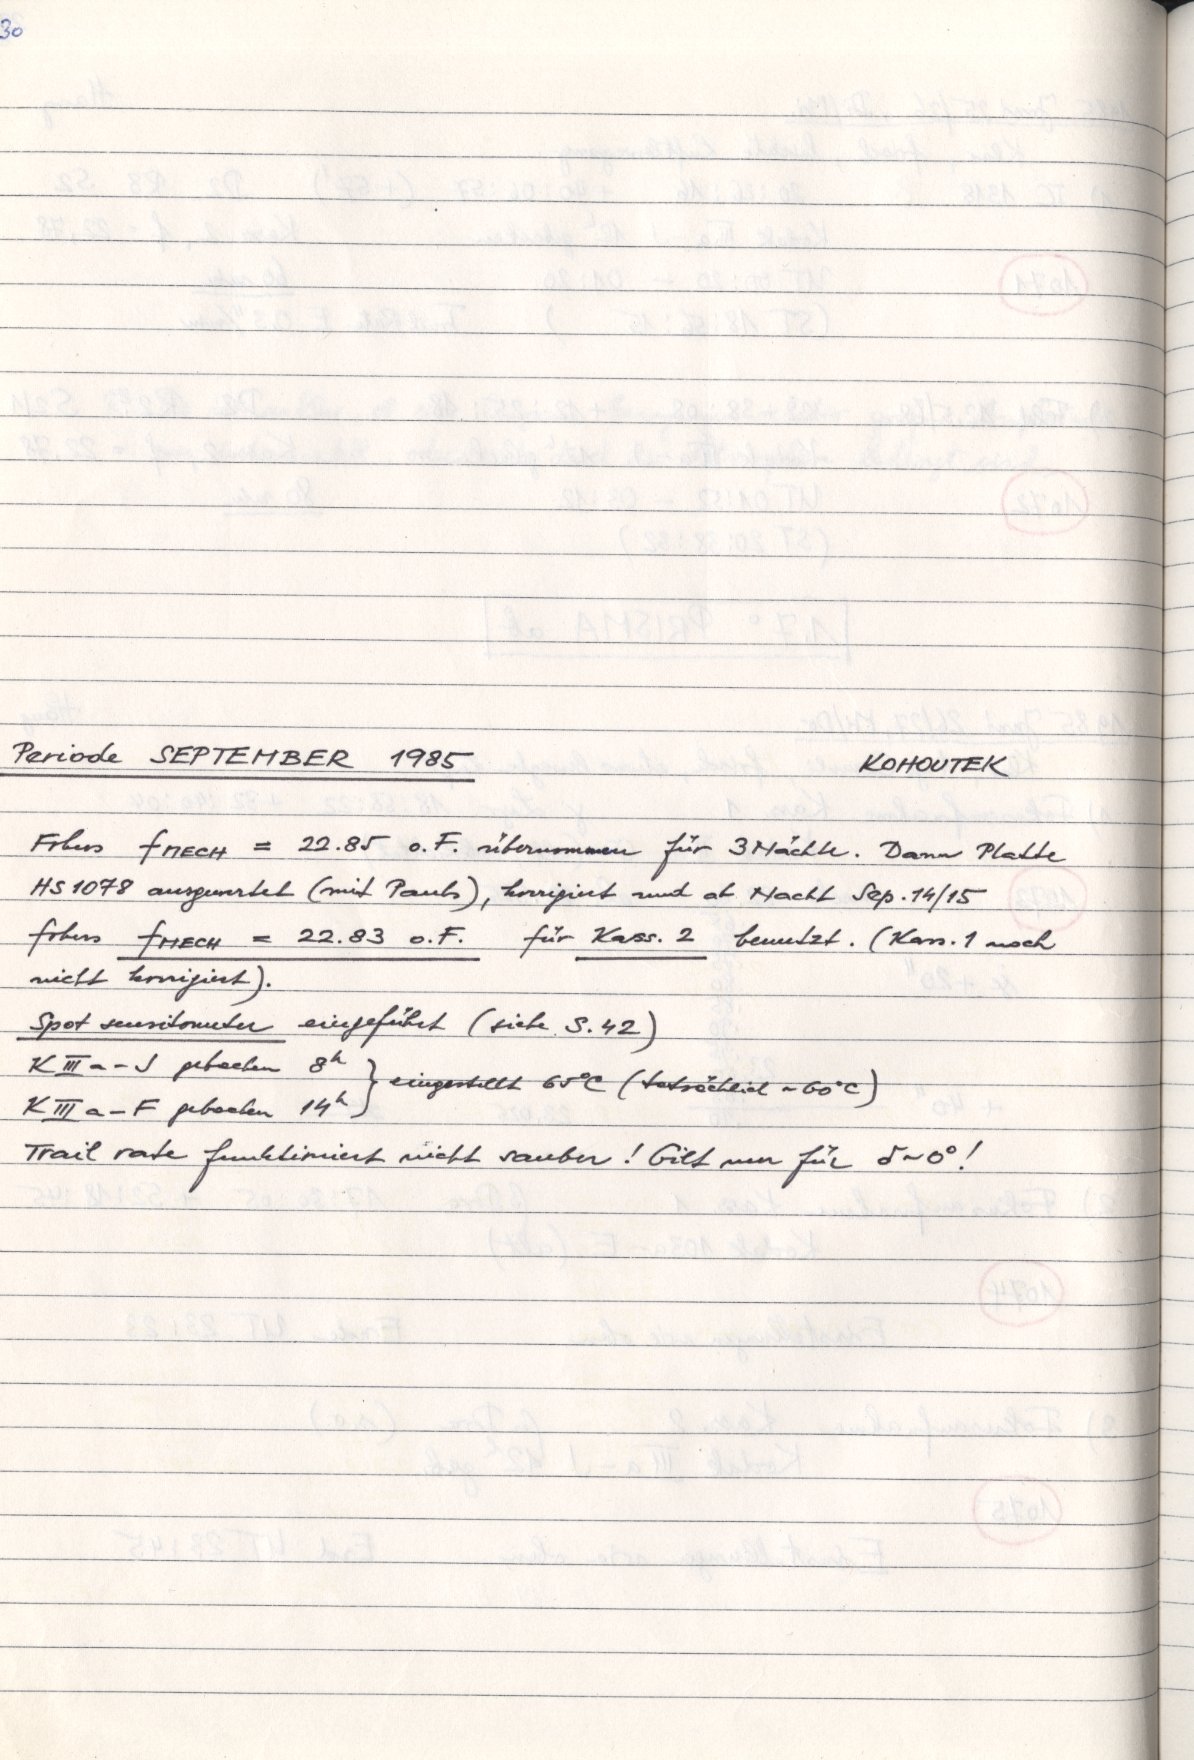 30
Periode SEPTEMBER 1985 KOHOUTEK
Fokus fMECH = 22.85 o.F. übernommen für 3 Nächte. Dann Platte
HS 1078 ausgewertet (mit Pauls), korrigiert und ab Nacht Sep. 14/15
fokus fMECH = 22.83 o.F. für Kass. 2 benutzt. (Kass. 1 noch
nicht korrigiert).
Spot sensitometer eingeführt (siehe S. 42)
K III a-J gebacken 8h
} eingestellt 65°C (tatsächlich ~60°C)
K III a-F gebacken 14h
Trail rate funktioniert nicht sauber! Gilt nur für δ~0°!